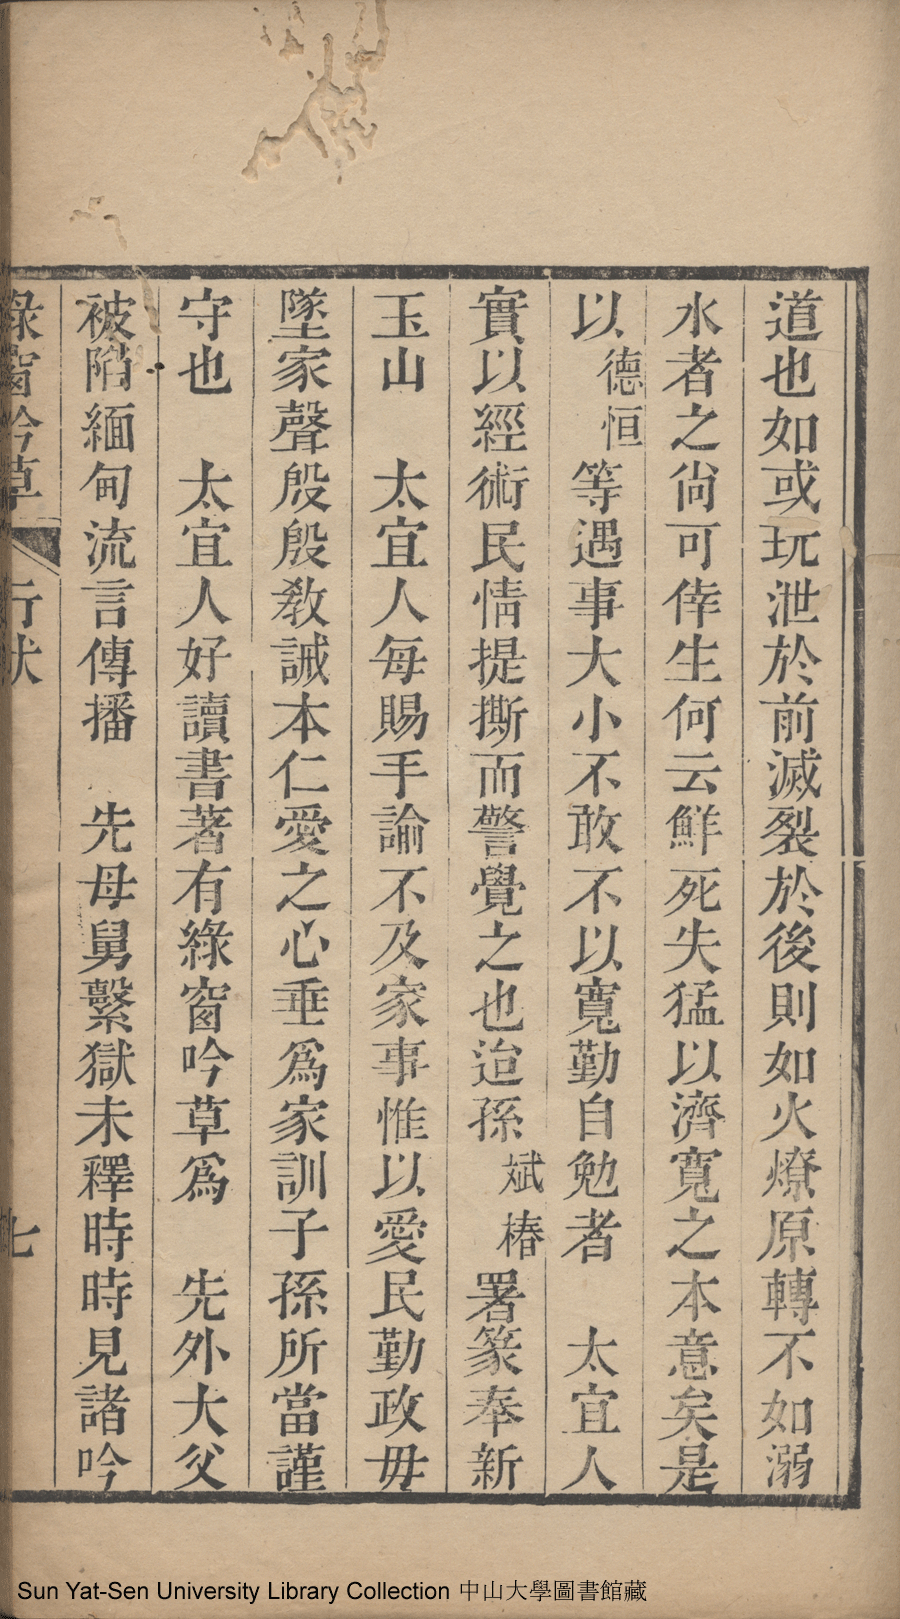 道也如或玩泄於前滅裂於後則如火燎原轉不如溺
水者之尙可倖生何云鮮死失猛以濟寬之本意矣是
以德恒等遇事大小不敢不以寬勤自勉者　太宜人
實以經術民情提撕而警覺之也迨孫斌椿署篆奉新
玉山　太宜人每賜手諭不及家事惟以愛民勤政毋
墜家聲殷殷敎誡本仁愛之心垂爲家訓子孫所當謹
守也　太宜人好讀書著有綠窗吟草爲　先外大父
被陷緬甸流言傳播　先母舅繫獄未釋時時見諸吟
綠窗吟草　行狀　七
Sun Yat-Sen University Library Collection 中山大學圖書館藏